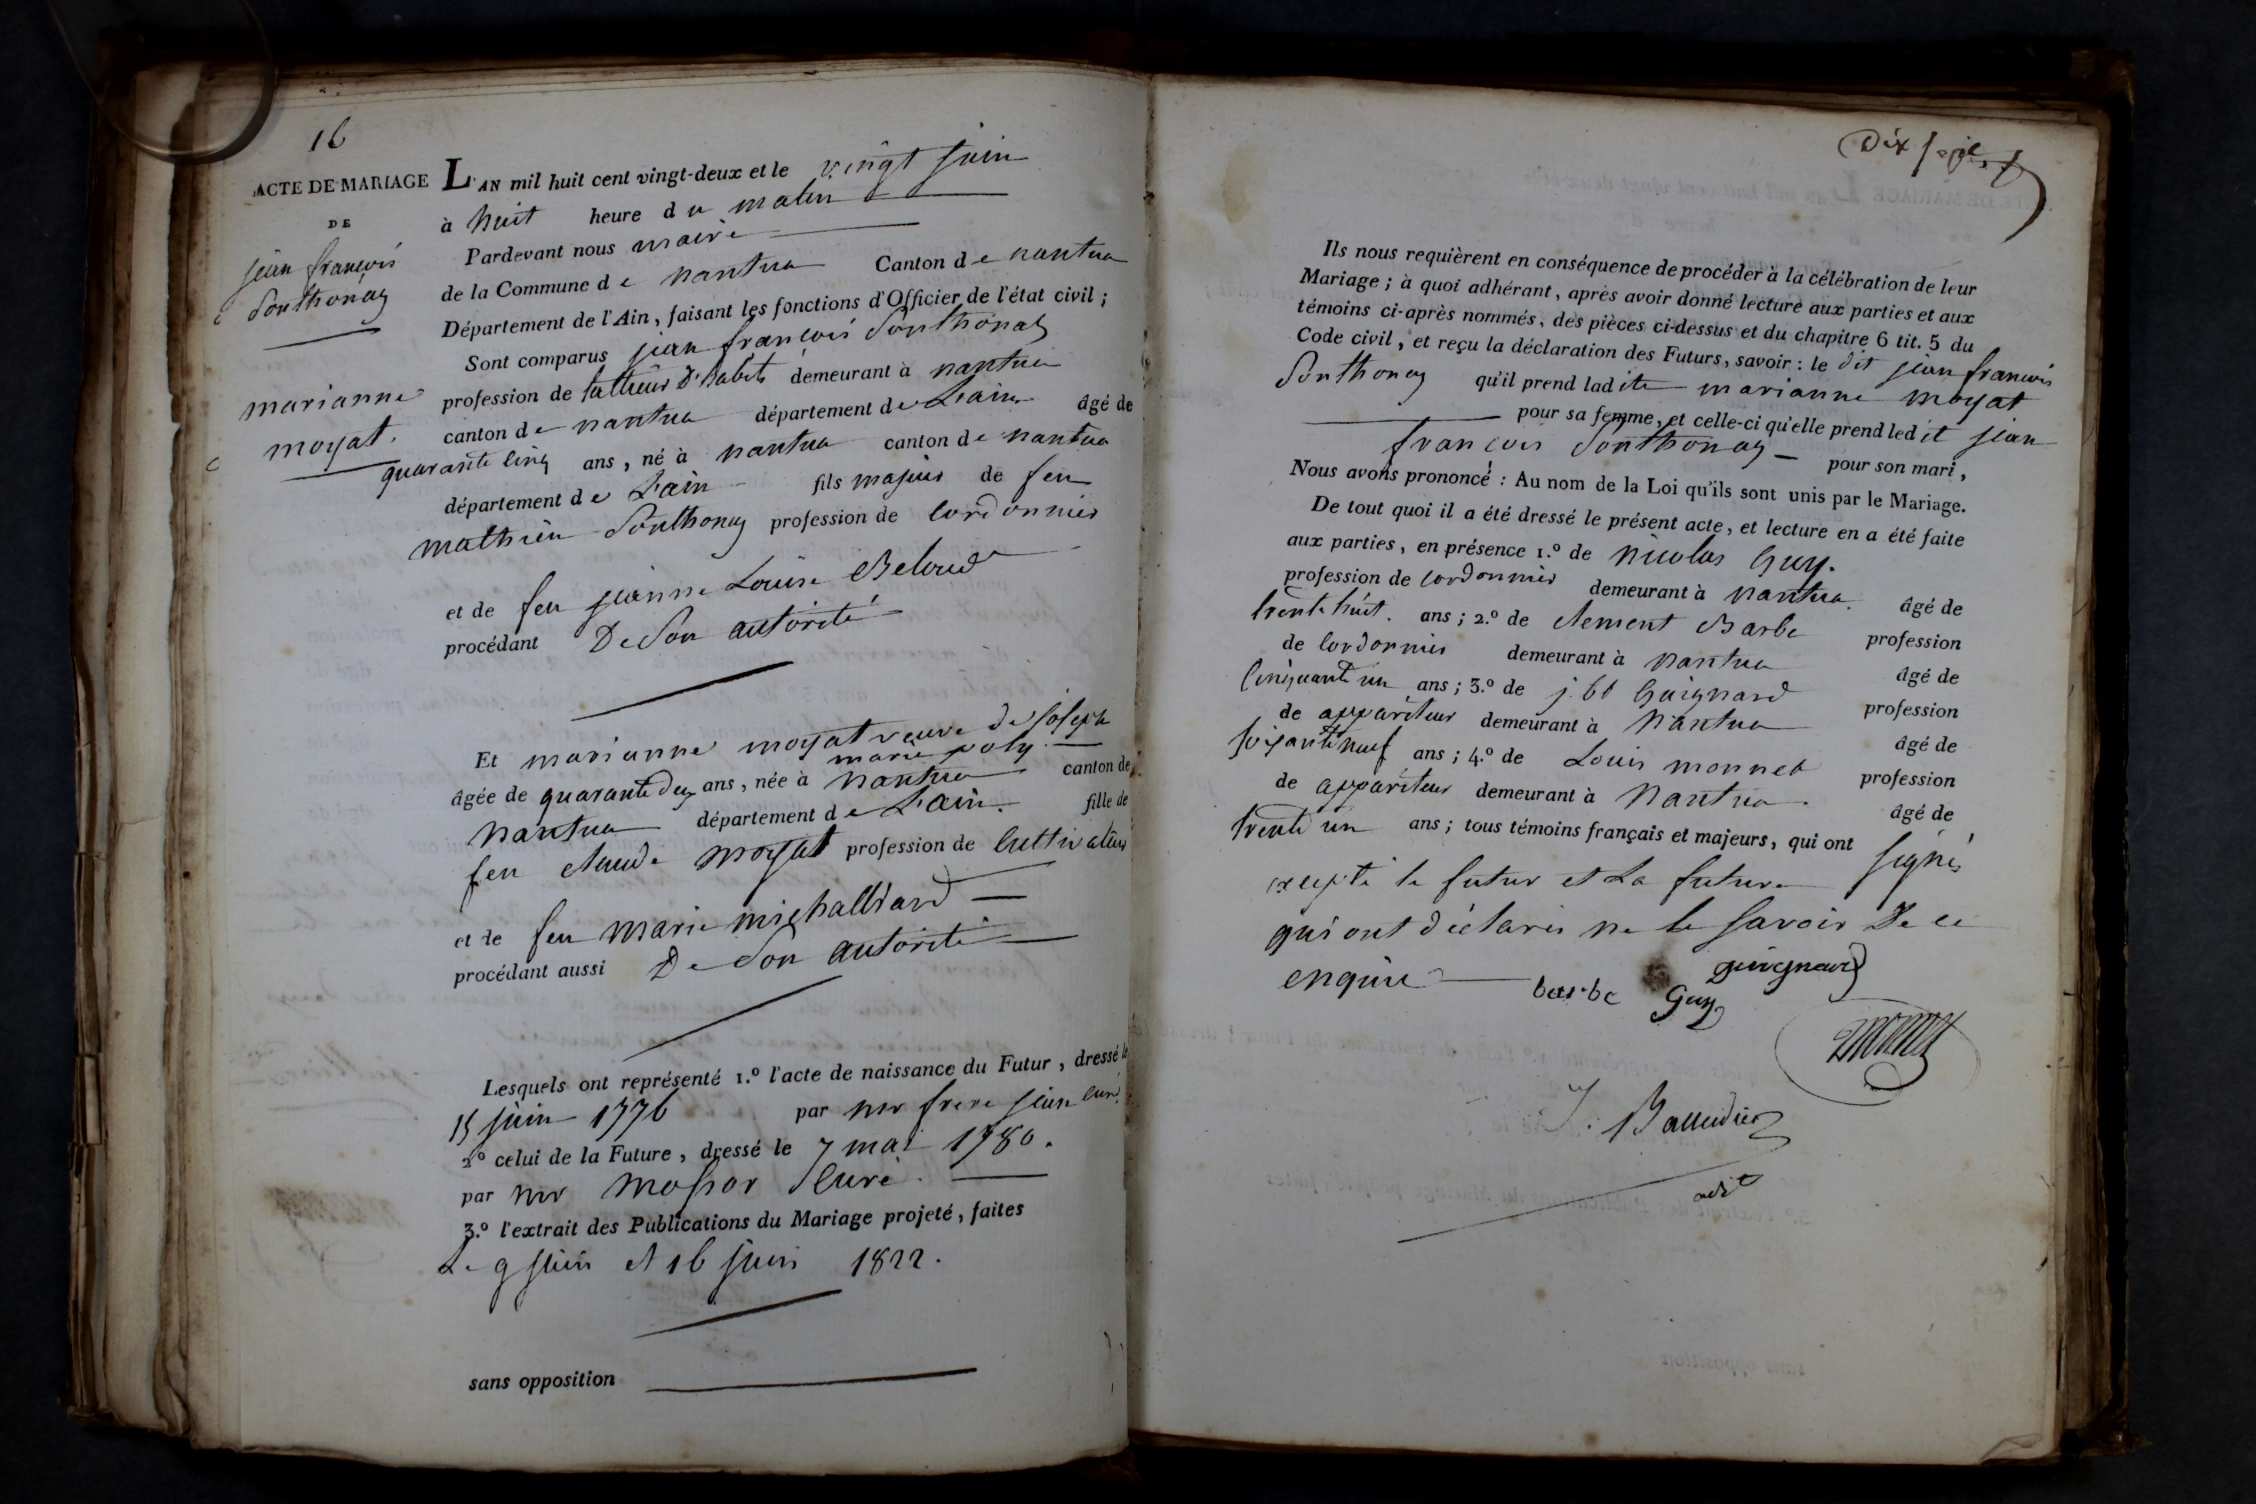 16
ACTE DE MARIAGE
DE
jean françois
Sonthonay
marianne
moyat.
L'AN mil huit cent vingt-deux et le vingt juin
à huit heure du matin
Pardevant nous maire
de la Commune de nantua Canton de nantua
Département de l'Ain, faisant les fonctions d'Officier de l'état civil;
Sont comparus jean françois Sonthonay
profession de tailleur d'habits demeurant à nantua
canton de nantua département de L'ain âgé de
quarante cinq ans, né à nantua canton de nantua
département de L'ain fils majeur de feu
mathieu Sonthonay profession de cordonnier
et de feu jeanne Louise Beloud
procédant De Son autorité
Et marianne moyat veuve de joseph
marie poly
âgée de quarante deux ans, née à nantua canton de
nantua département de L'ain. fille de
feu claude moyat profession de cultivateur
et de feu marie michalliard
procédant aussi De Son autorité
Lesquels ont représenté 1.º l'acte de naissance du Futur, dressé le
15 juin 1776 par mr frere jean curé.
2º celui de la Future, dressé le 7 mai 1780.
par mr curé.
3.º l'extrait des Publications du Mariage projeté, faites
Le 9 juin et 16 juin 1822.
sans opposition
Dix sept
Ils nous requièrent en conséquence de procéder à la célébration de leur
Mariage; à quoi adhérant, après avoir donné lecture aux parties et aux
témoins ci-après nommés, des pièces ci-dessus et du chapitre 6 tit. 5 du
Code civil, et reçu la déclaration des Futurs, savoir: le dit jean francois
Sonthonay qu'il prend ladite marianne moyat
pour sa femme, et celle-ci qu'elle prend ledit jean
francois Sonthonay pour son mari,
Nous avons prononcé: Au nom de la Loi qu'ils sont unis par le Mariage.
De tout quoi il a été dressé le présent acte, et lecture en a été faite
aux parties, en présence 1.º de nicolas Guy.
profession de cordonnier demeurant à nantua. âgé de
trente huit. ans; 2.º de clement Barbe profession
de cordonnier demeurant à nantua âgé de
cinquante un ans; 3.º de j. bt Guignard profession
de appariteur demeurant à Nantua âgé de
soixante neuf ans; 4.º de Louis monnet profession
de appariteur demeurant à Nantua. âgé de
trente un ans; tous témoins français et majeurs, qui ont signés
excepté le futur et La future
qui ont déclarés ne le Savoir De ce
enquis
barbe Guy guignard
monnet
J. Balleidier
adjt